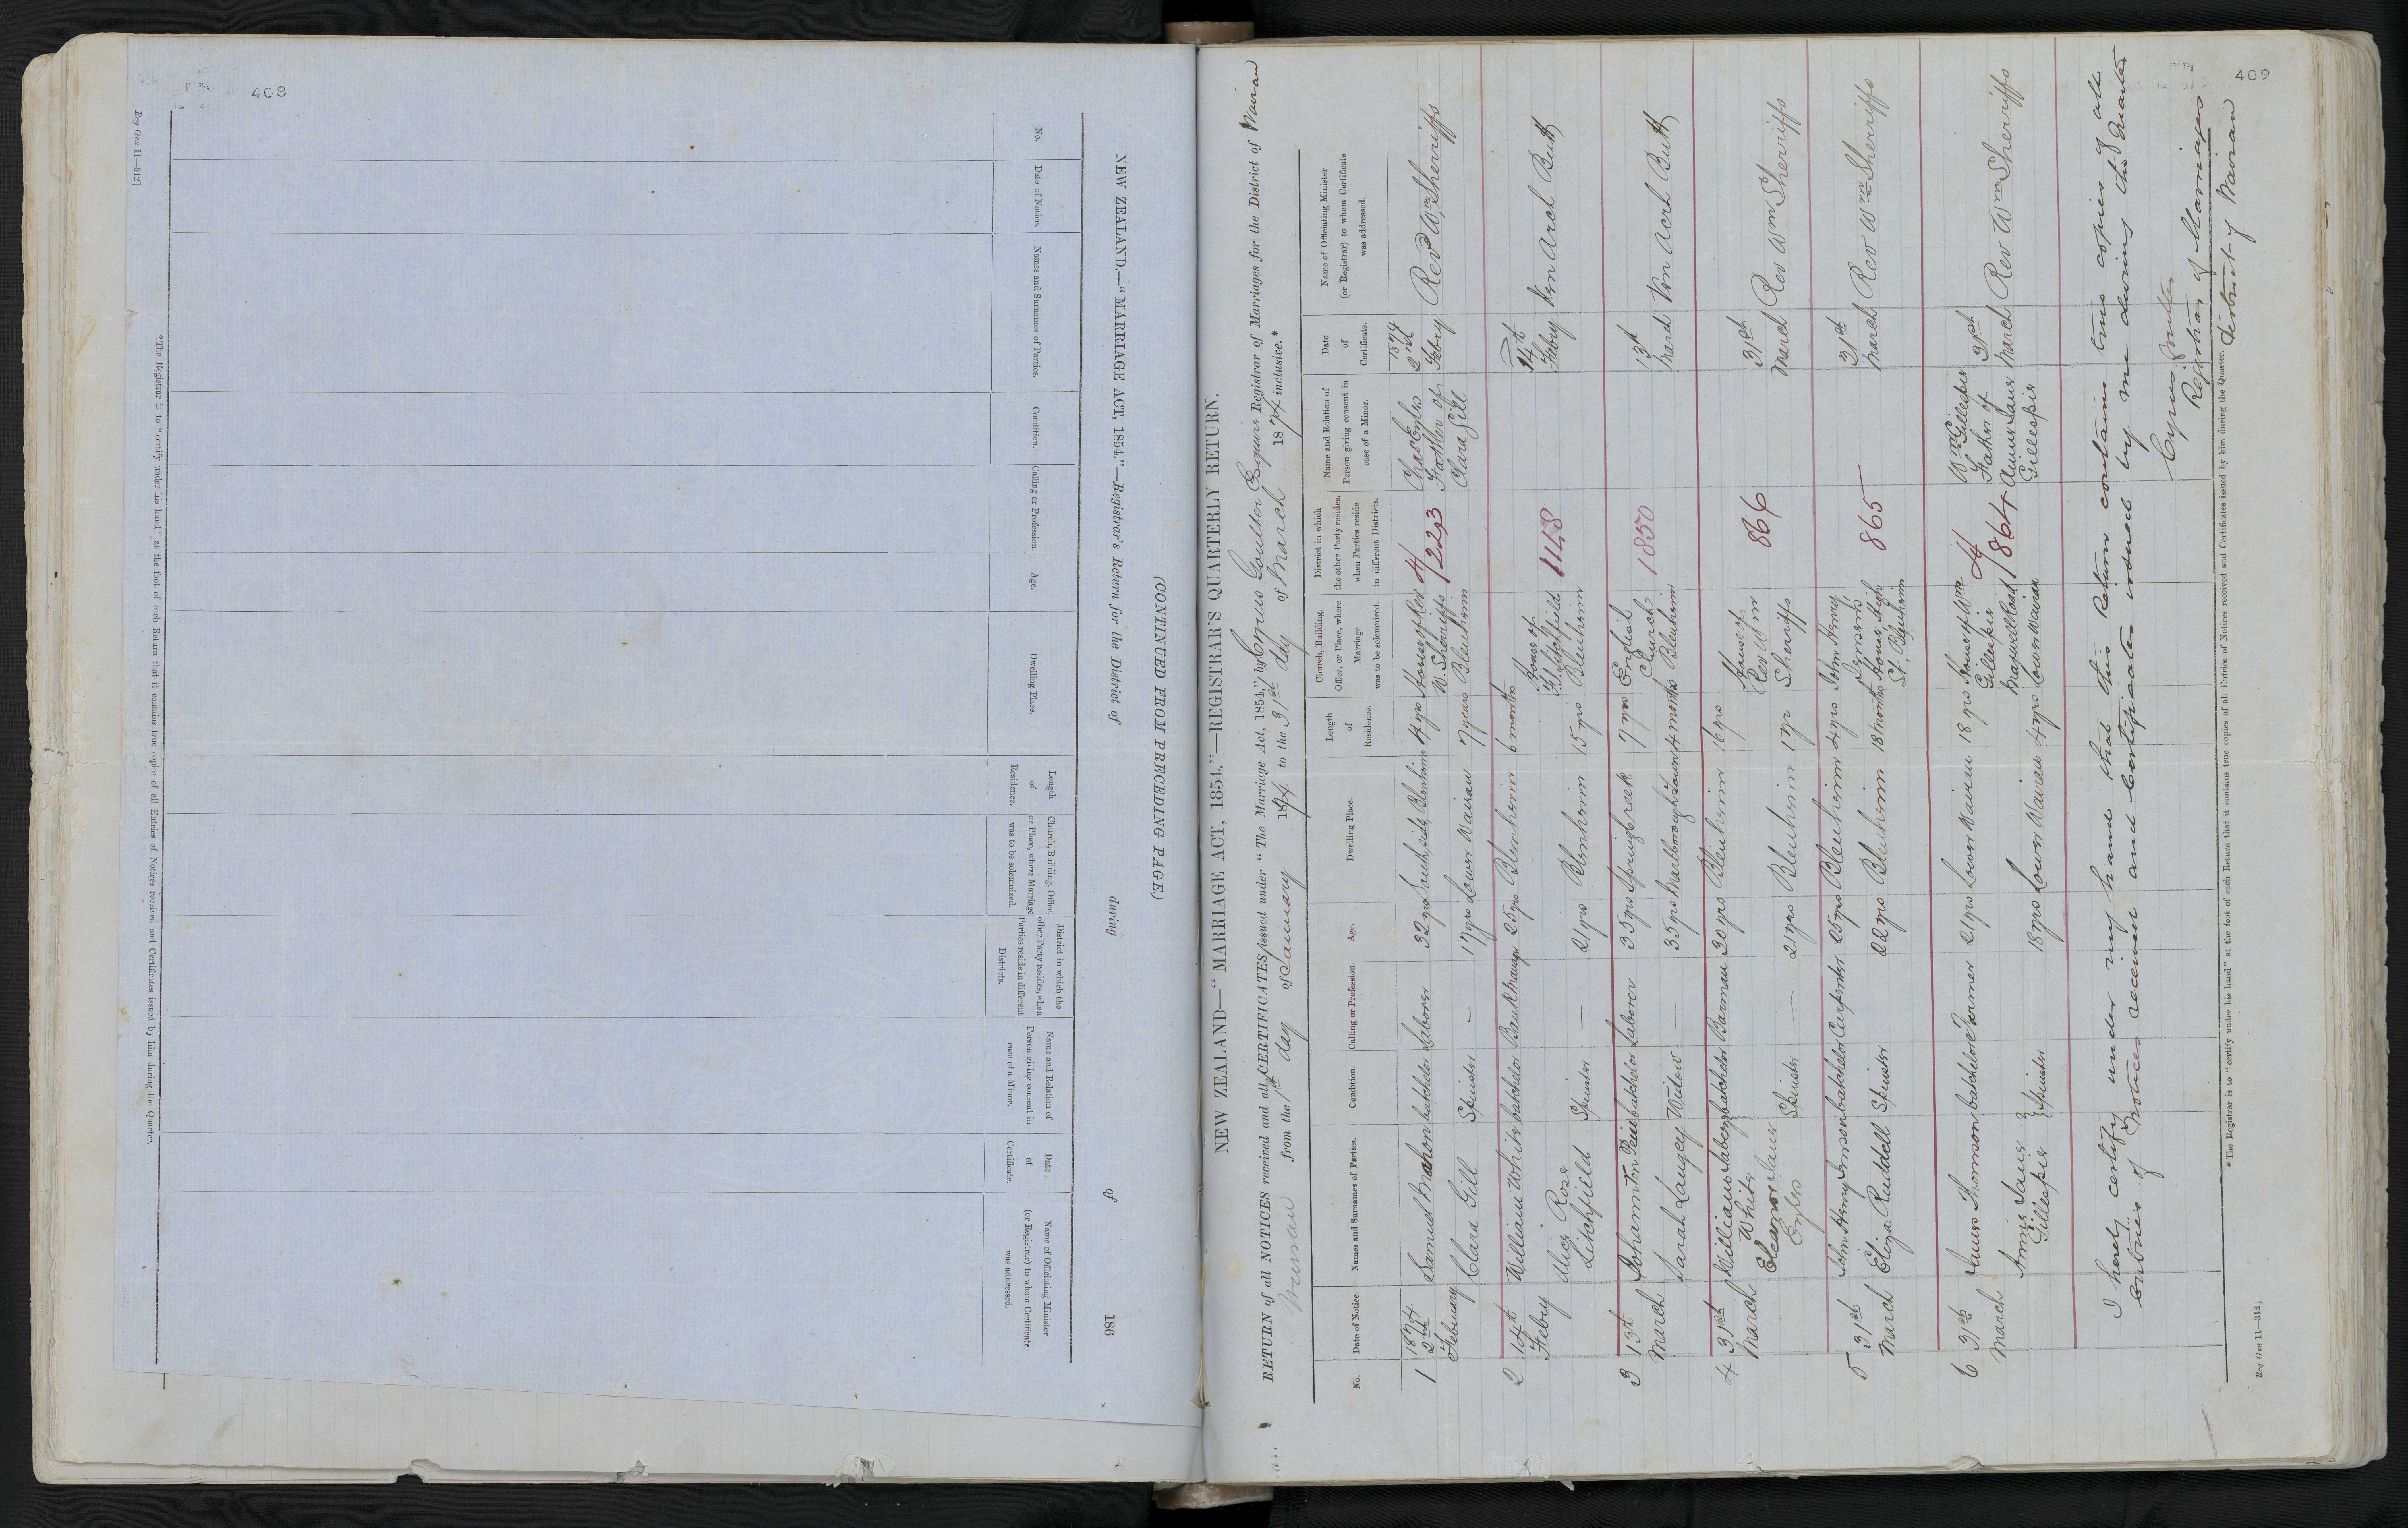 408
Reg Gen 11—312]
NEW ZEALAND.—"MARRIAGE ACT, 1854."—Registrar's Return for the District of during of 186
(CONTINUED FROM PRECEDING PAGE.)
No.
Date of Notice.
Names and Surnames of Parties.
Condition.
Calling or Profession.
Age.
Dwelling Place.
Length
of
Residence.
Church, Building, Office,
or Place, where Marriage
was to be solemnized.
District in which the
other Party resides, when
Parties reside in different
Districts.
Name and Relation of
Person giving consent in
case of a Minor.
Date
of
Certificate.
Name of Officiating Minister
(or Registrar) to whom Certificate
was addressed.
*The Registrar is to "certify under his hand" at the foot of each Return that it contains true copies of all Entries of Notices received and Certificates issued by him during the Quarter.
409
NEW ZEALAND—"MARRIAGE ACT, 1854."—REGISTRAR'S QUARTERLY RETURN.
RETURN of all NOTICES received and all CERTIFICATES issued under "The Marriage Act, 1854," by Cyrus Goulter Esquire Registrar of Marriages for the District of Wairau
Wairau from the 1st day of January 1874 to the 31st day of March 1874 inclusive.*
No.
Date of Notice.
Names and Surnames of Parties.
Condition.
Calling or Profession.
Age.
Dwelling Place.
Length
of
Residence.
Church, Building,
Office, or Place, where
Marriage
was to be solemnized.
District in which
the other Party resides,
when Parties reside
in different Districts.
Name and Relation of
Person giving consent in
case of a Minor.
Date
of
Certificate.
Name of Officiating Minister
(or Registrar) to whom Certificate
was addressed.
1 1874 2nd February Samuel batchelor Laborer 32 yrs South side Blenheim 4 yrs House of Rev W. Sherriffs Blenheim 1223 Chas Eyles Father of Clara Gill 1874 2nd Febry Revd Wm Sherriffs
Clara Gill Spinster — 17 yrs Lower Wairau 7 years
2 14th Febry William White batchelor 25 yrs Blenheim 6 months House of Litchfield Blenheim 1158 14th Febry Ven Arch Butt
Alice Rose Litchfield Spinster — 21 yrs Blenheim 15 yrs
3 13th March Johannton batchelor Laborer 35 yrs Spring Creek 7 yrs English Church Blenheim 1850 13th March Ven Acrh Butt
Sarah Langey Widow — 35 yrs Marlborough Town 4 months
4 31st March William Jabez White batchelor Barman 30 yrs Blenheim 16 yrs House of Rev Wm Sheriffs 866 31st March Rev Wm Sherriffs
Eleanor Jane Eyles Spinster — 21 yrs Blenheim 1 yr
5 31st March John Henry batchelor Carpenter 25 yrs Blenheim 4 yrs John Henry House, High St, Blenheim 865 31st March Rev Wm Sherriffs
Eliza Ruddell Spinster 22 yrs Blenheim 18 months
6 31st March James Thomson batchelor Farmer 21 yrs Lower Wairau 18 yrs House of Wm Gillespie Maxwell Road Lower Wairau 1864 Wm Gillespie Father of Annie Jane Gillespie 31st March Rev Wm Sherriffs
Annie Jane Gillespie Spinster 18 yrs Lower Wairau 4 yrs
I hereby certify under my hand that this Return contains true copies of all
Entries of Notices received and Certificates issued by me during the Quarter
Cyrus Goulter
Registrar of Marriages
District of Wairau
*The Registrar is to "certify under his hand" at the foot of each Return that it contains true copies of all Entries of Notices received and Certificates issued by him during the Quarter.
Reg Gen 11—312]